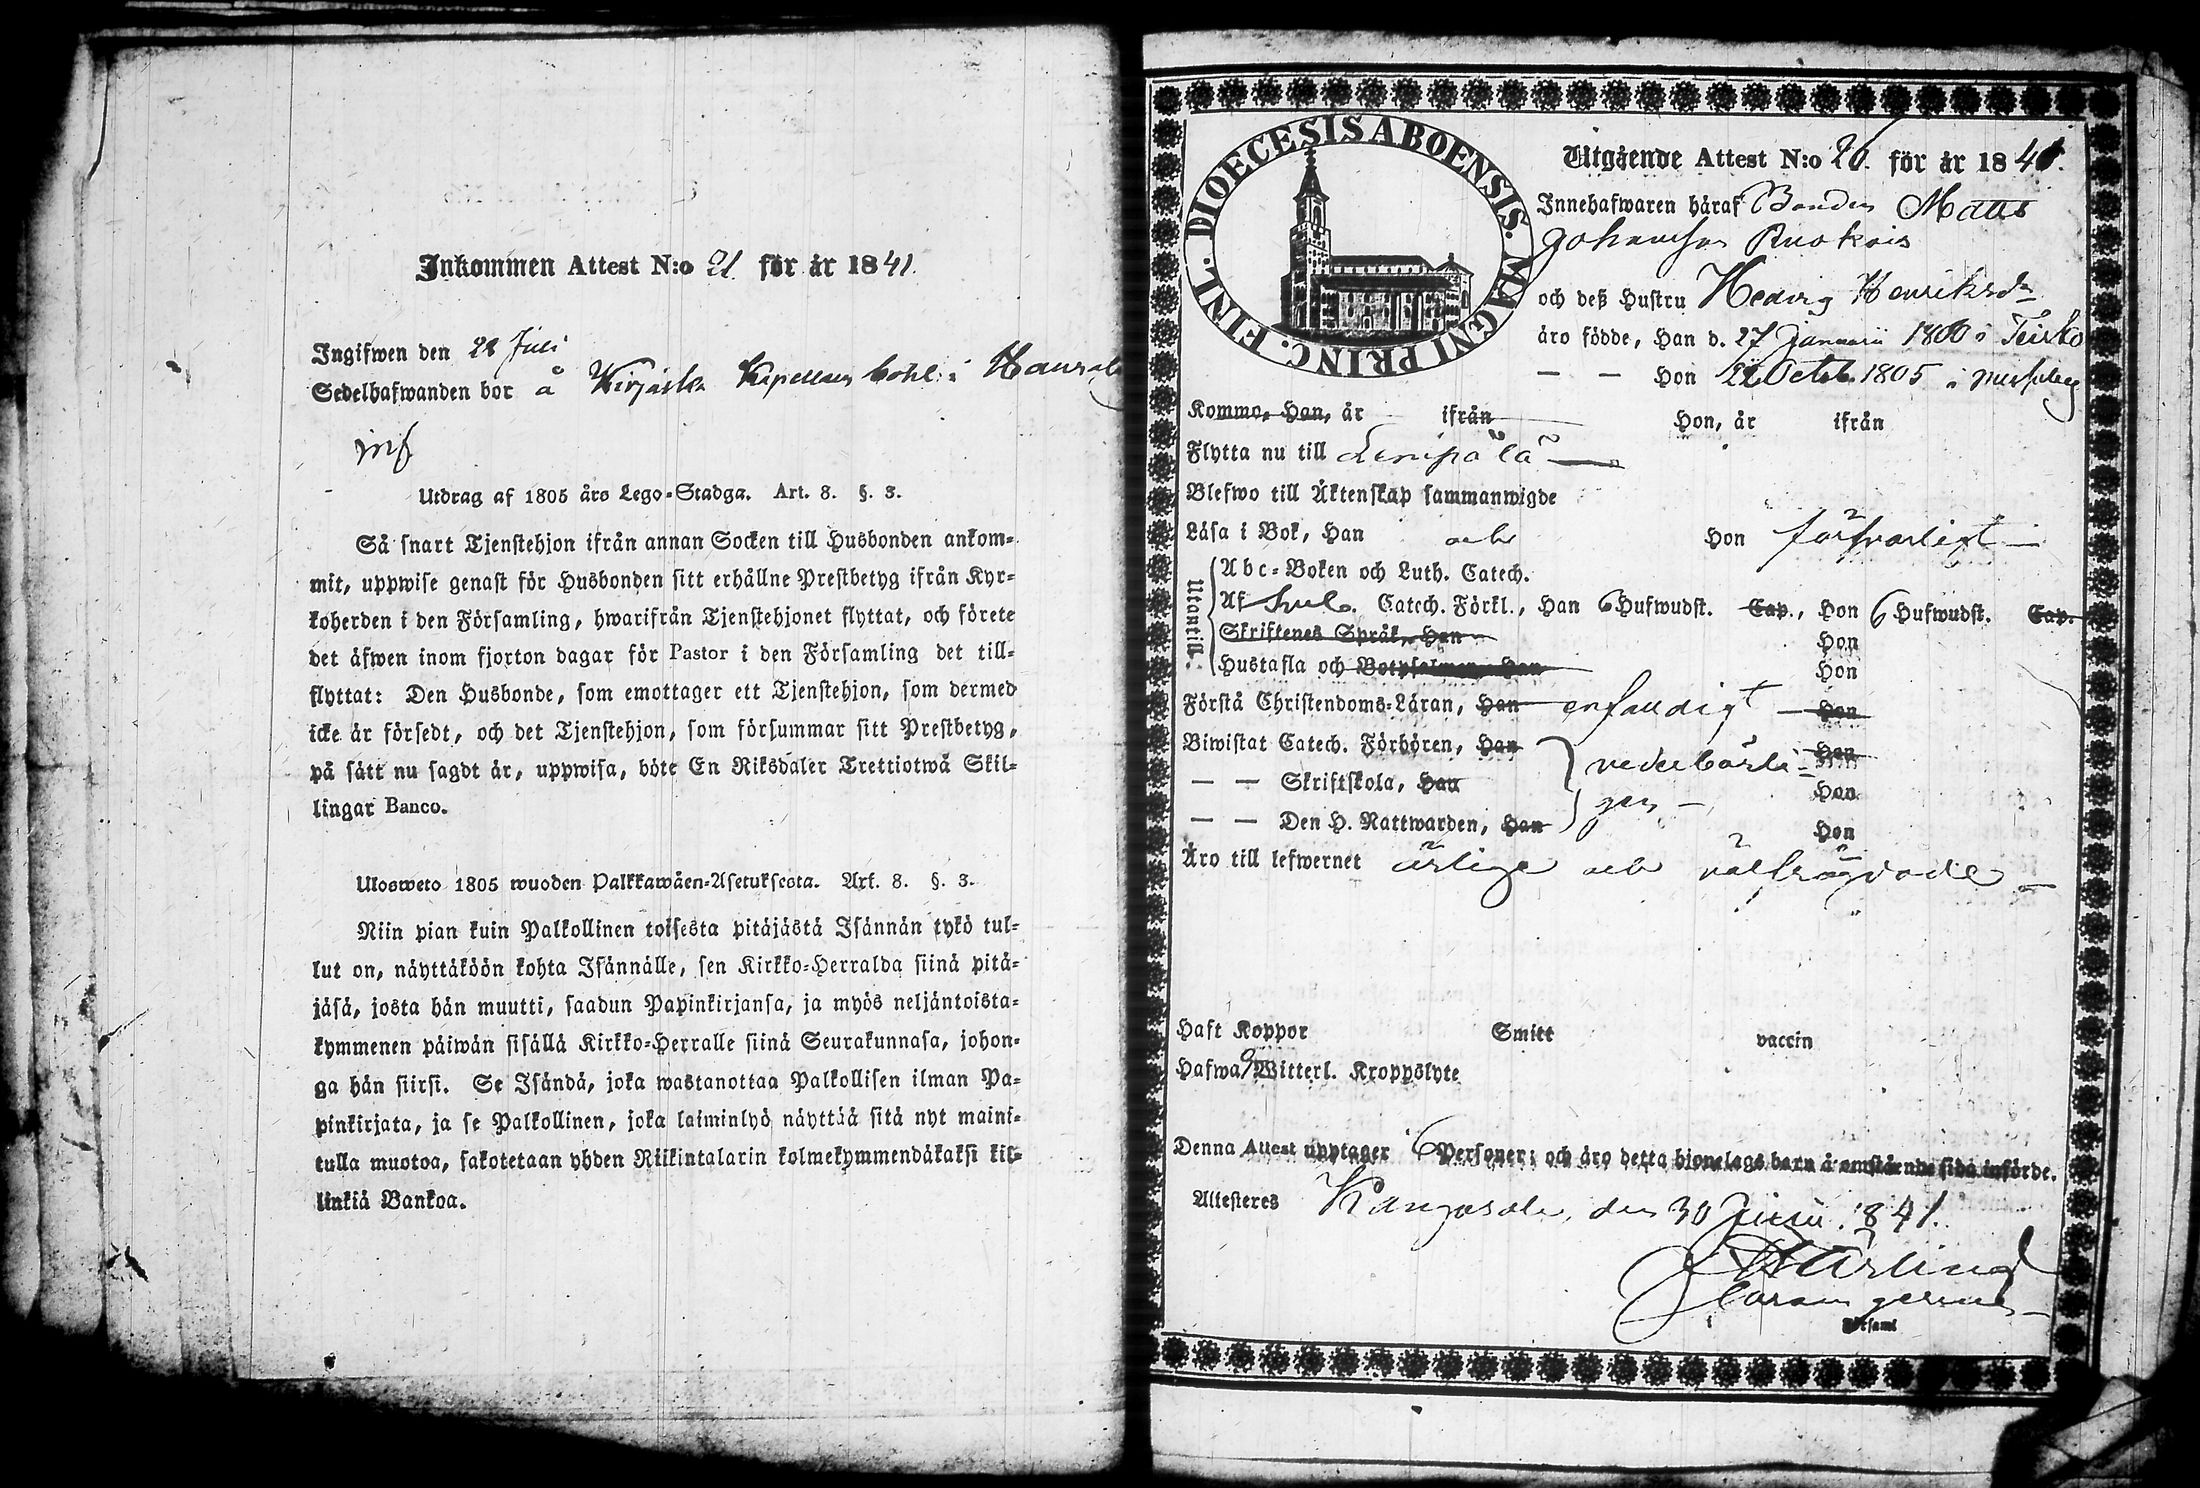 Inkommen Attest N:o 21 för år 1841.
Ingifwen den 28 Juli
Sedelhafwanden bor å Kirjaska Kapellans bohl i
Utdrag af 1805 års Lego-Stadga. Art. 8. §. 3.
Så snart Tjenstehjon ifrån annan Socken till Husbonden ankom-
mit, uppwise genast för Husbonden sitt erhållne Prestbetyg ifrån Kyr-
koherden i den Församling, hwarifrån Tjenstehjonet flyttat, och förete
det äfwen inom fjorton dagar för Pastor i den Församling det till-
flyttat: Den Husbonde, som emottager ett Tjenstehjon, som dermed
icke är försedt, och det Tjenstehjon, som försummar sitt Prestbetyg,
på sätt nu sagdt är, uppwisa, böte En Riksdaler Trettiotwå Skil-
lingar Banco.
Ulosweto 1805 wuoden Palkkawäen-Asetuksesta. Art. 8. §. 3.
Niin pian kuin Palkollinen toisesta pitäjästä Isännän tykö tul-
lut on, näyttäköön kohta Isännälle, sen Kirkko-Herralda siinä pitä-
jäsä, josta hän muutti, saadun Papinkirjansa, ja myös neljäntoista-
kymmenen päiwän sisällä Kirkko-Herralle siinä Seurakunnasa, johon-
ga hän siirsi. Se Isändä, joka wastanottaa Palkollisen ilman Pa-
pinkirjata, ja se Palkollinen, joka laiminlyö näyttää sitä nyt maini-
tulla muotoa, sakotetaan yhden Riikintalarin kolmekymmendäkaksi kil-
linkiä Bankoa.
DIOECESIS ABOENSIS. MAGNI PRINC. FINL.
Utgående Attest N:o 20 för år 1841.
Innehafwaren häraf Bonden Matts
Johansson
och deß Hustru Hedvig Henriksdr
äro födde, Han d. 27 Januarii 1800 i Teisko
— — Hon 22 Octob. 1805 i
Kommo, Han, år ifrån Hon, år ifrån
Flytta nu till Lempälä
Blefwo till Äktenskap sammanwigde
Läsa i Bok, Han och Hon försvarligt
Utantill.
Abc-Boken och Luth. Catech.
Af Sveb. Catech. Förkl., Han 6 Hufwudst. Cap., Hon 6 Hufwudst. Cap.
Skriftenes Språk, Han Hon
Hustafla och Botpsalmen, Han Hon
Förstå Christendoms-Läran, Han enfaldigt Hon
Biwistat Catech. Förhören, Han vederbörli- Hon
— — Skriftskola, Han gen Hon
— — Den H. Nattwarden, Han Hon
Äro till lefwernet ärlige och välfrägdade
Haft Koppor Smitt vaccin
Hafwa Witterl. Kroppslyte
Denna Attest upptager 6 Personer; och äro detta hjonelags barn å omstående sida införde.
Attesteres Kangasala, den 30 Junii 1841.
Församl